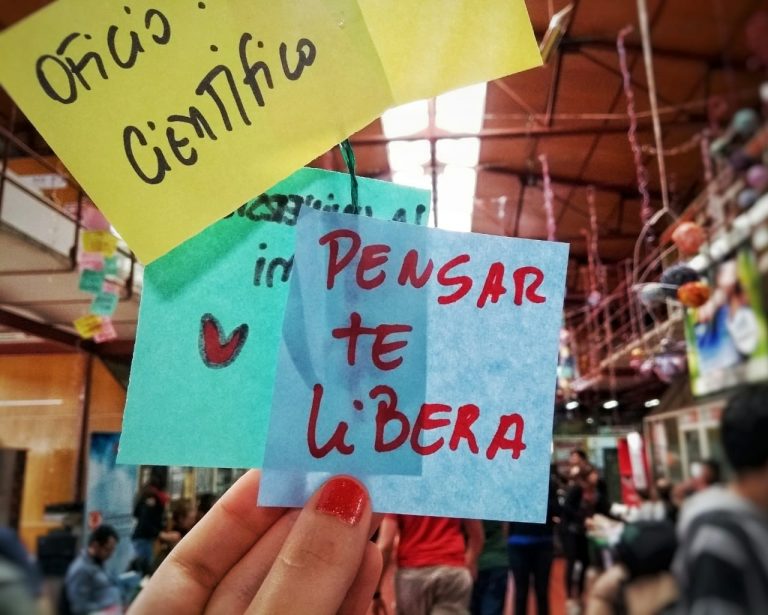 OFICIO:
CIENTÍFICO
in
PENSAR
TE
LIBERA